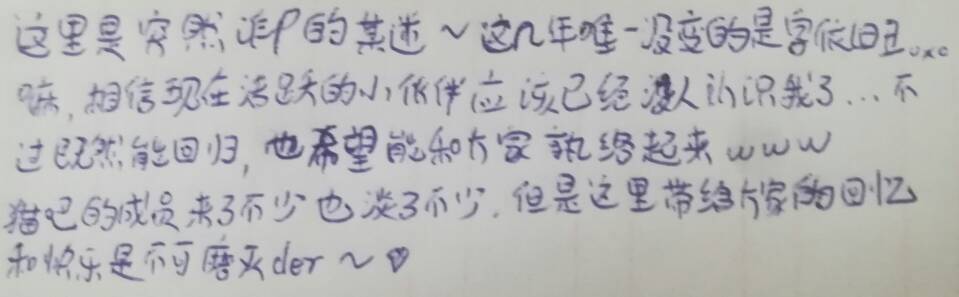 这里是突然诈尸的某迷~这几年唯一没变的是字依旧丑oxo
嘛,相信现在活跃的小伙伴应该已经没人认识我了...不
过既然能回归,也希望能和大家熟络起来www
猫吧的成员来了不少也淡了不少.但是这里带给大家的回忆
和快乐是不可磨灭der~♡